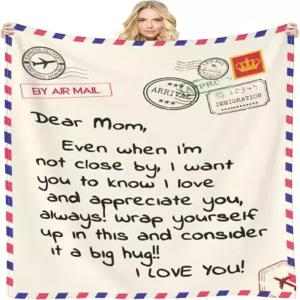 BY AIR MAIL
ARRIVAL
12345
IMMIGRATION
Dear Mom,
Even when i'm
not close by, I want
you to know I love
and appreciate you,
always! Wrap yourself
up in this and consider
it a big hug!!
I LOVE YOU!